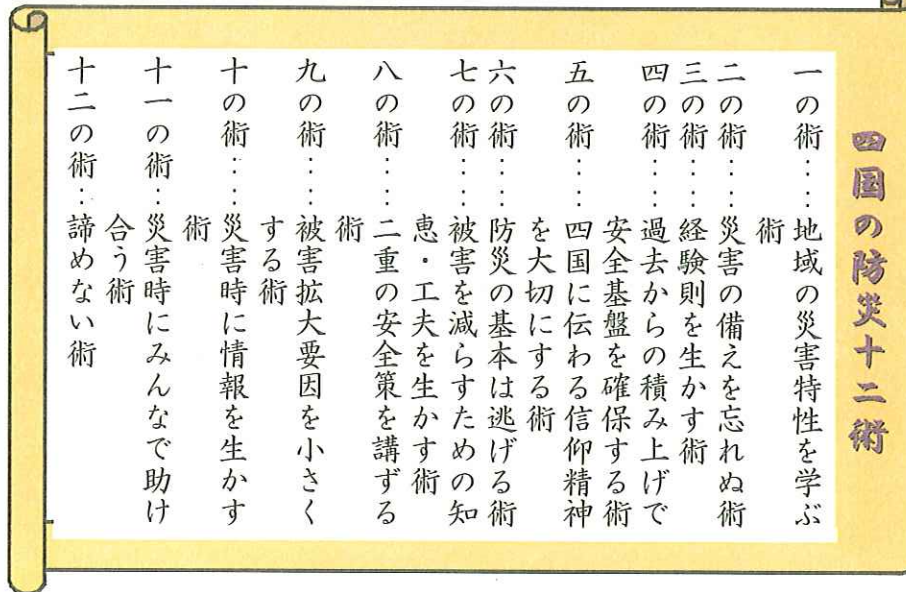 四国の防災十二術
一の術‥‥地域の災害特性を学ぶ
術
二の術‥‥災害の備えを忘れぬ術
三の術‥‥経験則を生かす術
四の術‥‥過去からの積み上げで
安全基盤を確保する術
五の術‥‥四国に伝わる信仰精神
を大切にする術
六の術‥‥防災の基本は逃げる術
七の術‥‥被害を減らすための知
恵・工夫を生かす術
八の術‥‥二重の安全策を講ずる
術
九の術‥‥被害拡大要因を小さく
する術
十の術‥‥災害時に情報を生かす
術
十一の術‥災害時にみんなで助け
合う術
十二の術‥諦めない術